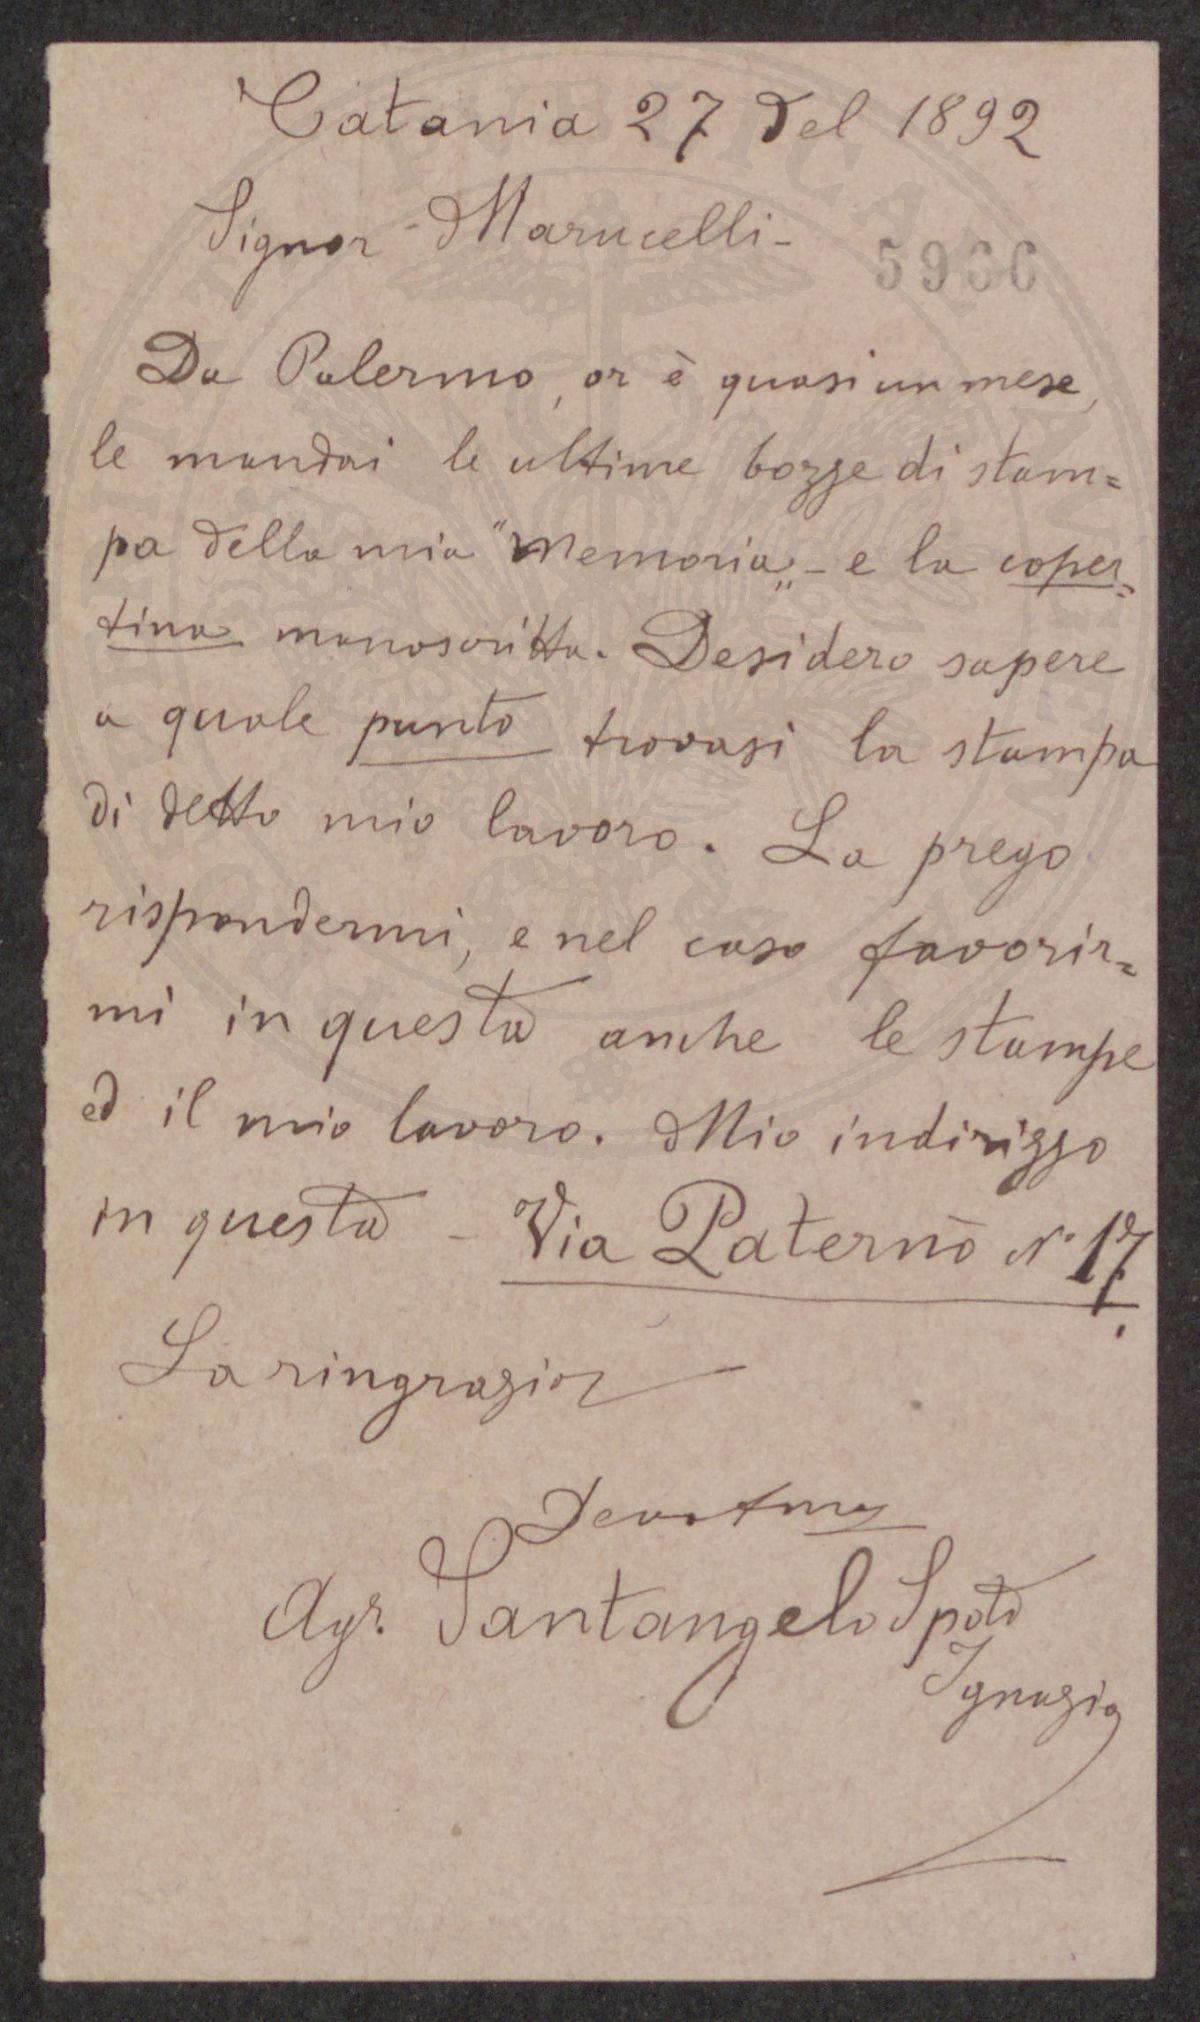 Catania 27 del 1892
Signor Marucelli-
5966
Da Palermo, or è quasi un mese,
le mandai le ultime bozze di stam=
pa della mia "Memoria„ - e la coper=
tina manoscritta. Desidero sapere
a quale punto trovasi la stampa
di detto mio lavoro. La prego
rispondermi, e nel caso favorir=
mi in questa anche le stampe
ed il mio lavoro. Mio indirizzo
in questa - Via Paternò N. 17.
La ringrazio
Devotmo
Agr. Santangelo Spoto
Ignazio